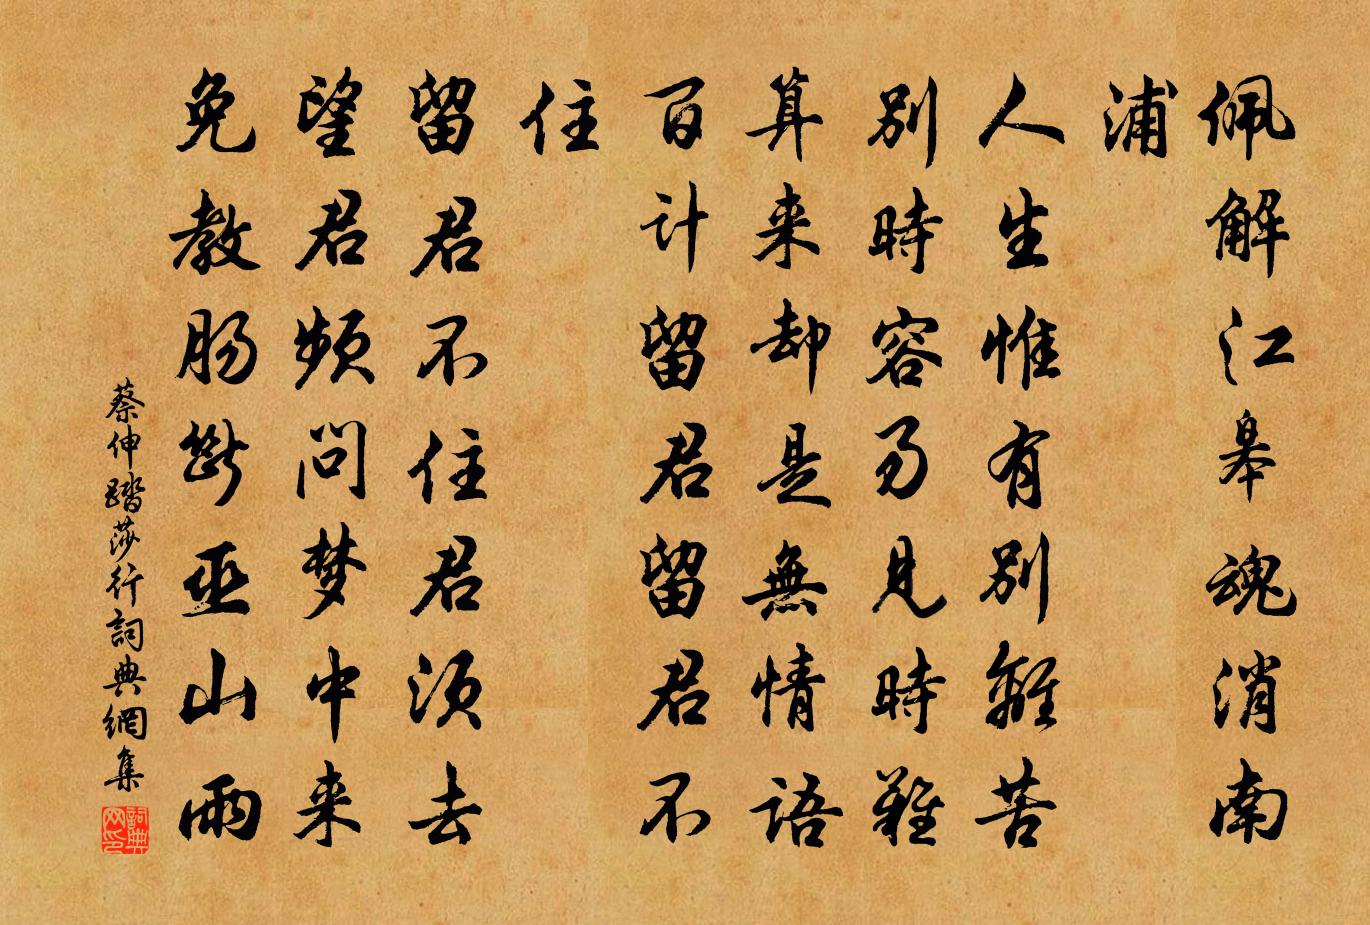 佩解江皋魂消南
浦
人生惟有别離苦
别時容易見時難
算来却是無情語
百计留君留君不
住
留君不住君須去
望君频问梦中来
免教肠断巫山雨
蔡伸踏莎行詞典網集
詞典网印